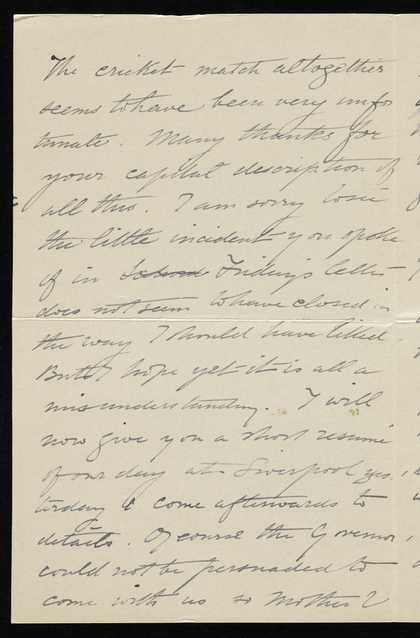 The cricket match altogether
seems to have been very unfor
tunate. Many thanks for
your capital description of
all this. I am sorry
the little incident you spoke
of in Friday's letter
does not seem to have closed in
the way I should have liked.
But I hope yet it is all a
misunderstanding. I will
now give you a short resumé
of our day at Liverpool yes.
terday & come afterwards to
details. Of course the Governor
could not be persuaded to
come with us so Mother &